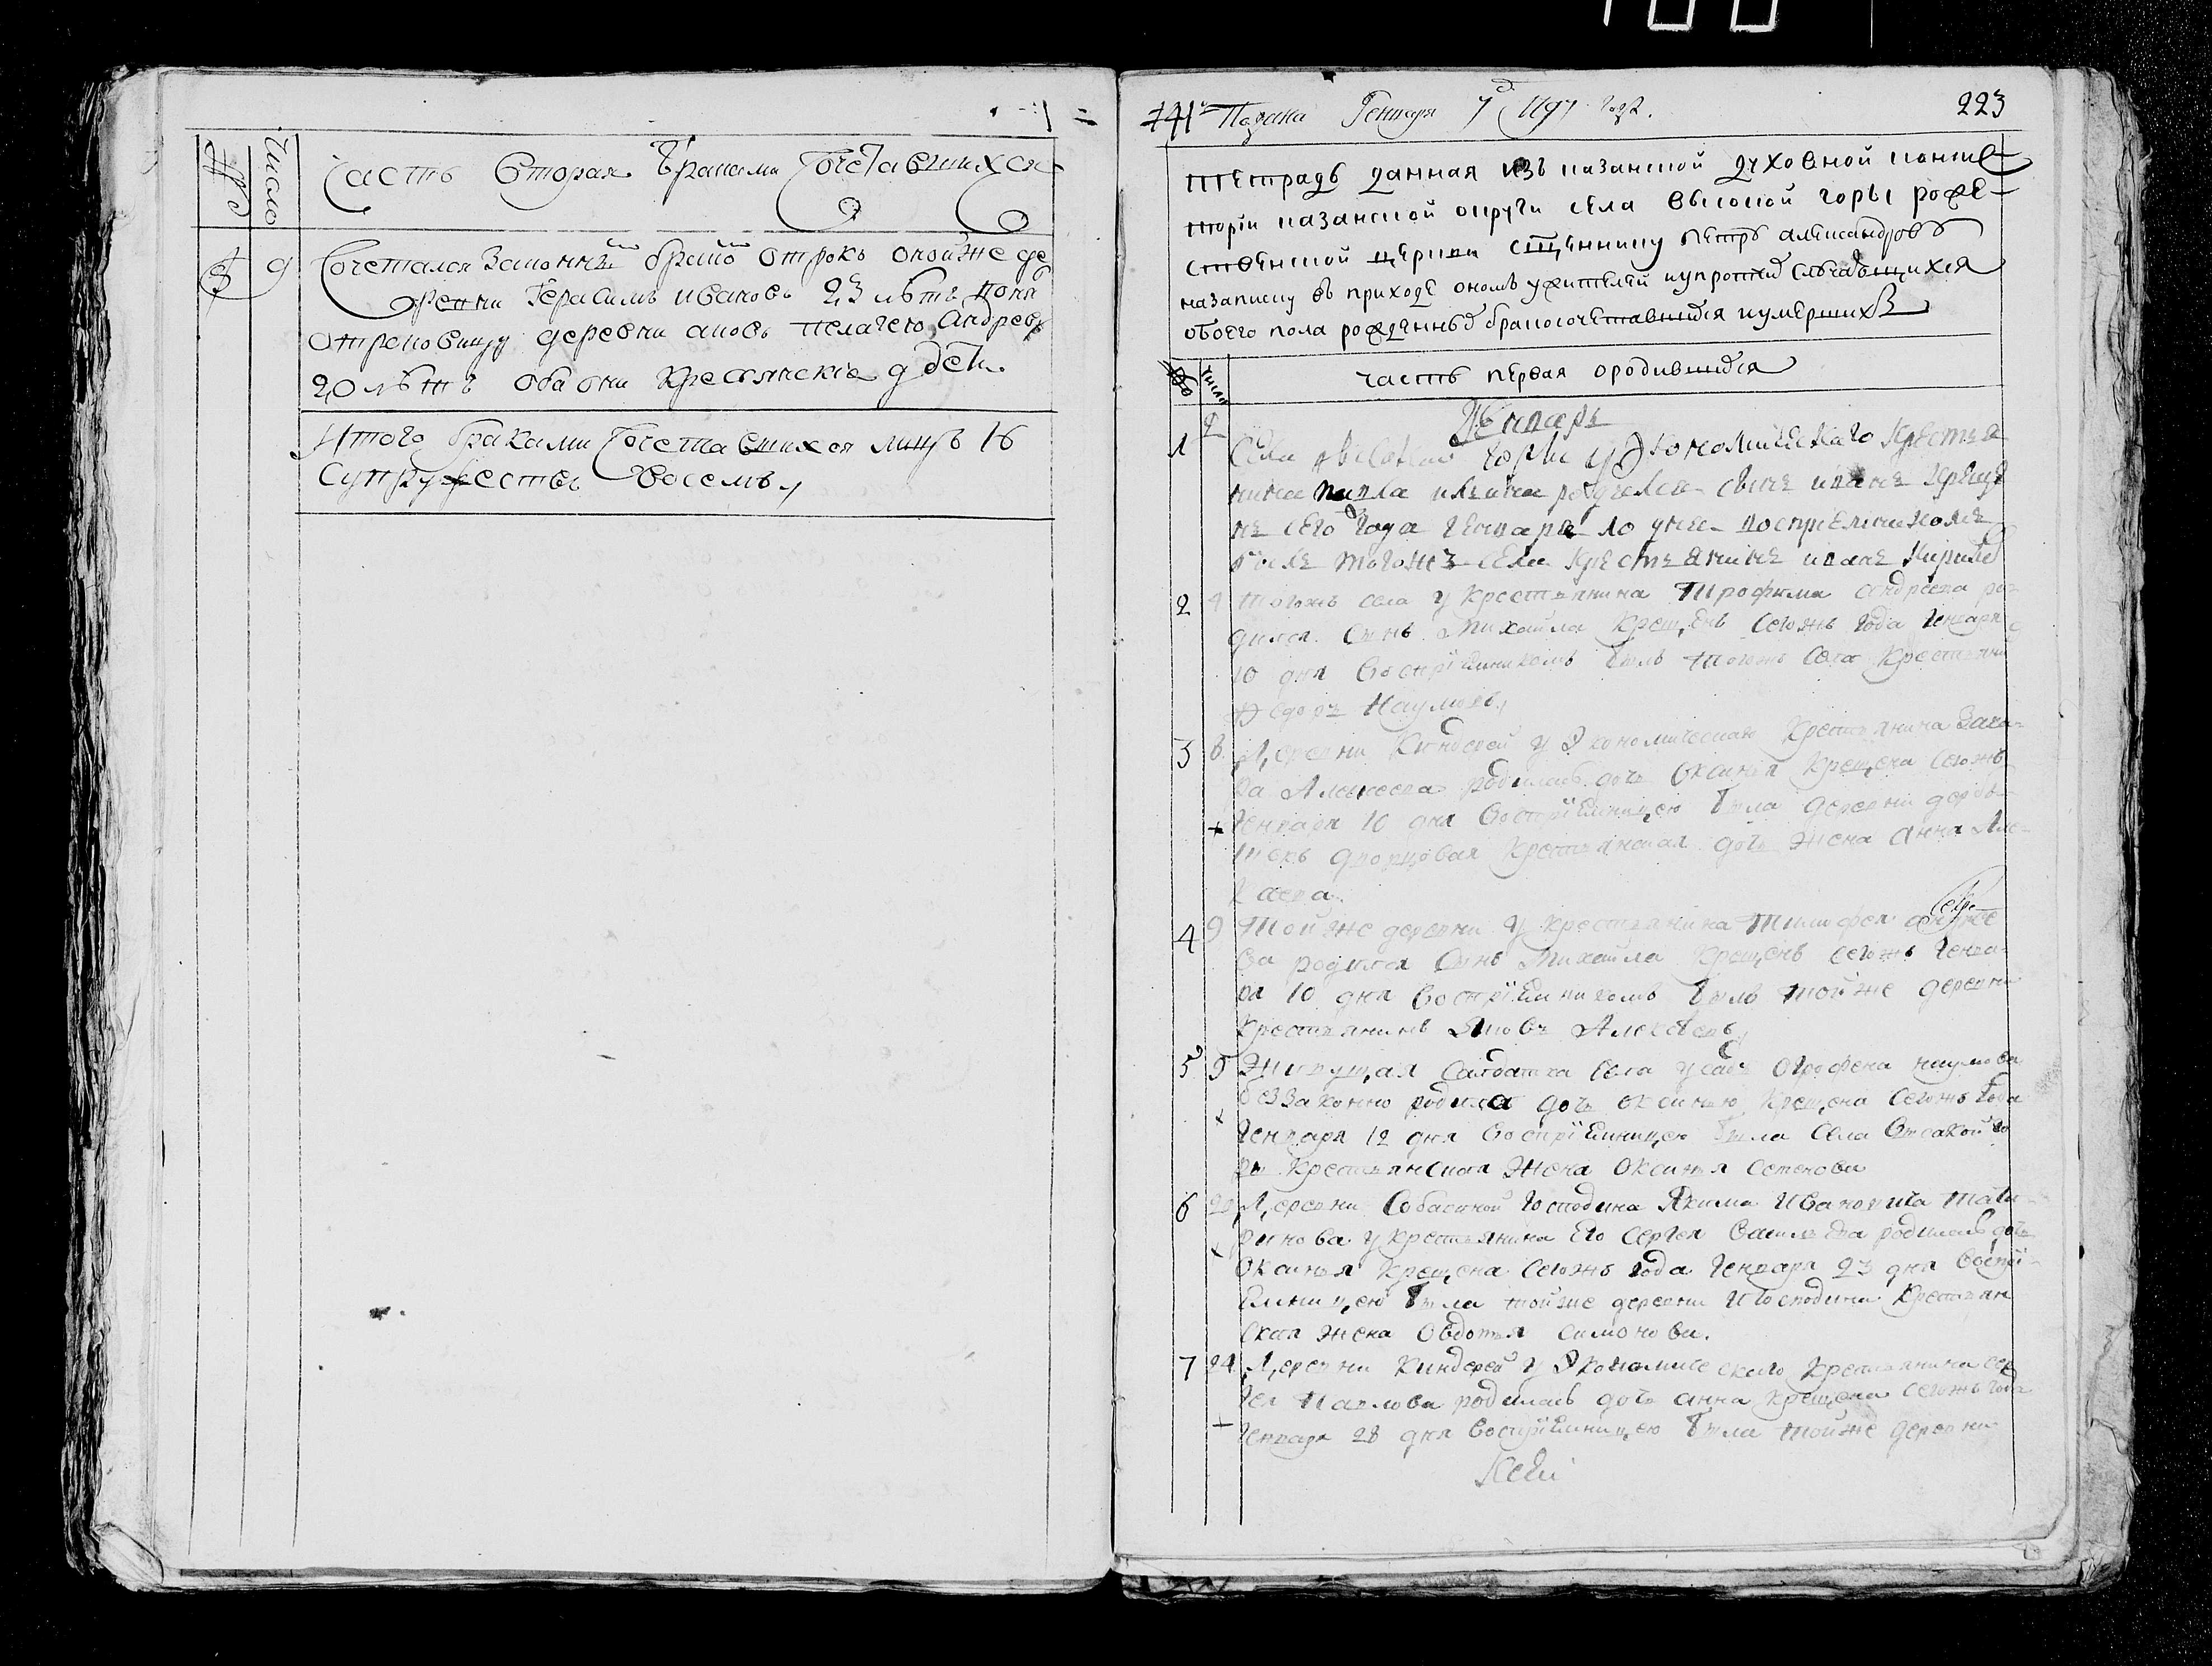 №
Число
Часть вторая браками сочетавшихся
8
9
Сочетался законныи бракō отрокъ оной же де
ревни Герасимъ Ивановъ 23 лѣтъ поня
отроковицу деревни Пелагею Андрееву
20 лѣтъ оба они крестьянскіе дѣти
Итого браками сочетавшихся лицъ 16
супружествъ восемь
741 Подана Генваря 7 1797 года.
223
тетрадь данная изъ казанской духовной консис
торіи казанской округи села высокой горы роже
ственской церкви сщеннику петръ александровъ
назаписку въ приходе ономъ ужителей и упротчихъ случающихся
обоего пола рожденныхъ бракосочетавшихся иумершихъ
№
число
часть первая ородившихся
Генварь
1
2
Села высокой горы у экономическаго крестья
нина ильина родился сынъ иванъ крещ
нъ сего года генваря 10 дня восприемникомъ
былъ тогожъ села крестьянинъ иванъ кирил
2
4
тогожъ села у крестьянина Трофима андреева ро
дился сынъ Михаила крещенъ сегожъ года генваря
10 дня воспріемникомъ былъ тогожъ села крестьяни
Федоръ Наумовъ
3
6
Деревни Киндерей у Экономическаго крестьянина Заха-
ра Алексеева родилась дочь Оксинья крещена сегожъ
Генваря 10 дня воспріемницею была деревни
дворцовая крестьянская дочь жена анна Але-
4
9
Той же деревни у крестьянина Тимофея
ва родился сынъ Михаила крещенъ сегожъ Генва-
ря 10 дня воспріемникомъ былъ той же деревни
крестьянинъ Яковъ Алексѣевъ
5
9
Живущая салдатка села усадъ Огрофена наумова
беззаконно родила дочь оксинью крещена сегожъ года
Генваря 12 дня воспріемницею была села Высакой го
ры крестьянская жена Оксинья
6
20
Деревни Собакиной Господина Якима Ивановича Тата
ринова у крестьянина его Сергея Васильева родилась дочь
Оксинья крещена сегожъ года Генваря 23 дня воспрі-
емницею была той же деревни и Господина крестьян
ская жена Овдотья симонова.
7
24
Деревни Киндерей у Экономическаго крестьянина сер
гея Павлова родилась дочь анна крещена сегожъ года
Генваря 28 дня воспріемницею была той же деревни